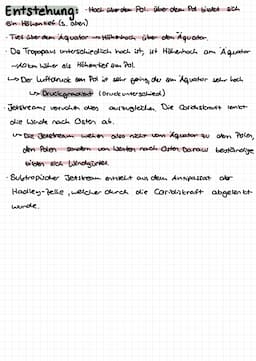 Entstehung: - Hoch über dem Pol über dem Pol bildet sich
ein Höhentief (s. oben)
- Tief über dem Äquator → Höhenhoch über dem Äquator.
- Da Tropopause unterschiedlich hoch ist, ist Höhenhoch am Äquator
höher als Höhentief am Pol.
↳ Der Luftdruck am Pol ist sehr gering, der am Äquator sehr hoch
↳ Druckgradient (Druckunterschied)
- Jetstreams versuchen dies auszugleichen. Die Corioliskraft lenkt
die Winde nach Osten ab.
↳ Die Jetstreams wehen also nicht vom Äquator zu den Polen,
den Polen sondern von Westen nach Osten. Daraus beständige
bilden sich Windgürtel.
- Subtropischer Jetstream entsteht aus dem Antipassat der
Hadley-Zelle, welcher durch die Corioliskraft abgelenkt
wurde.